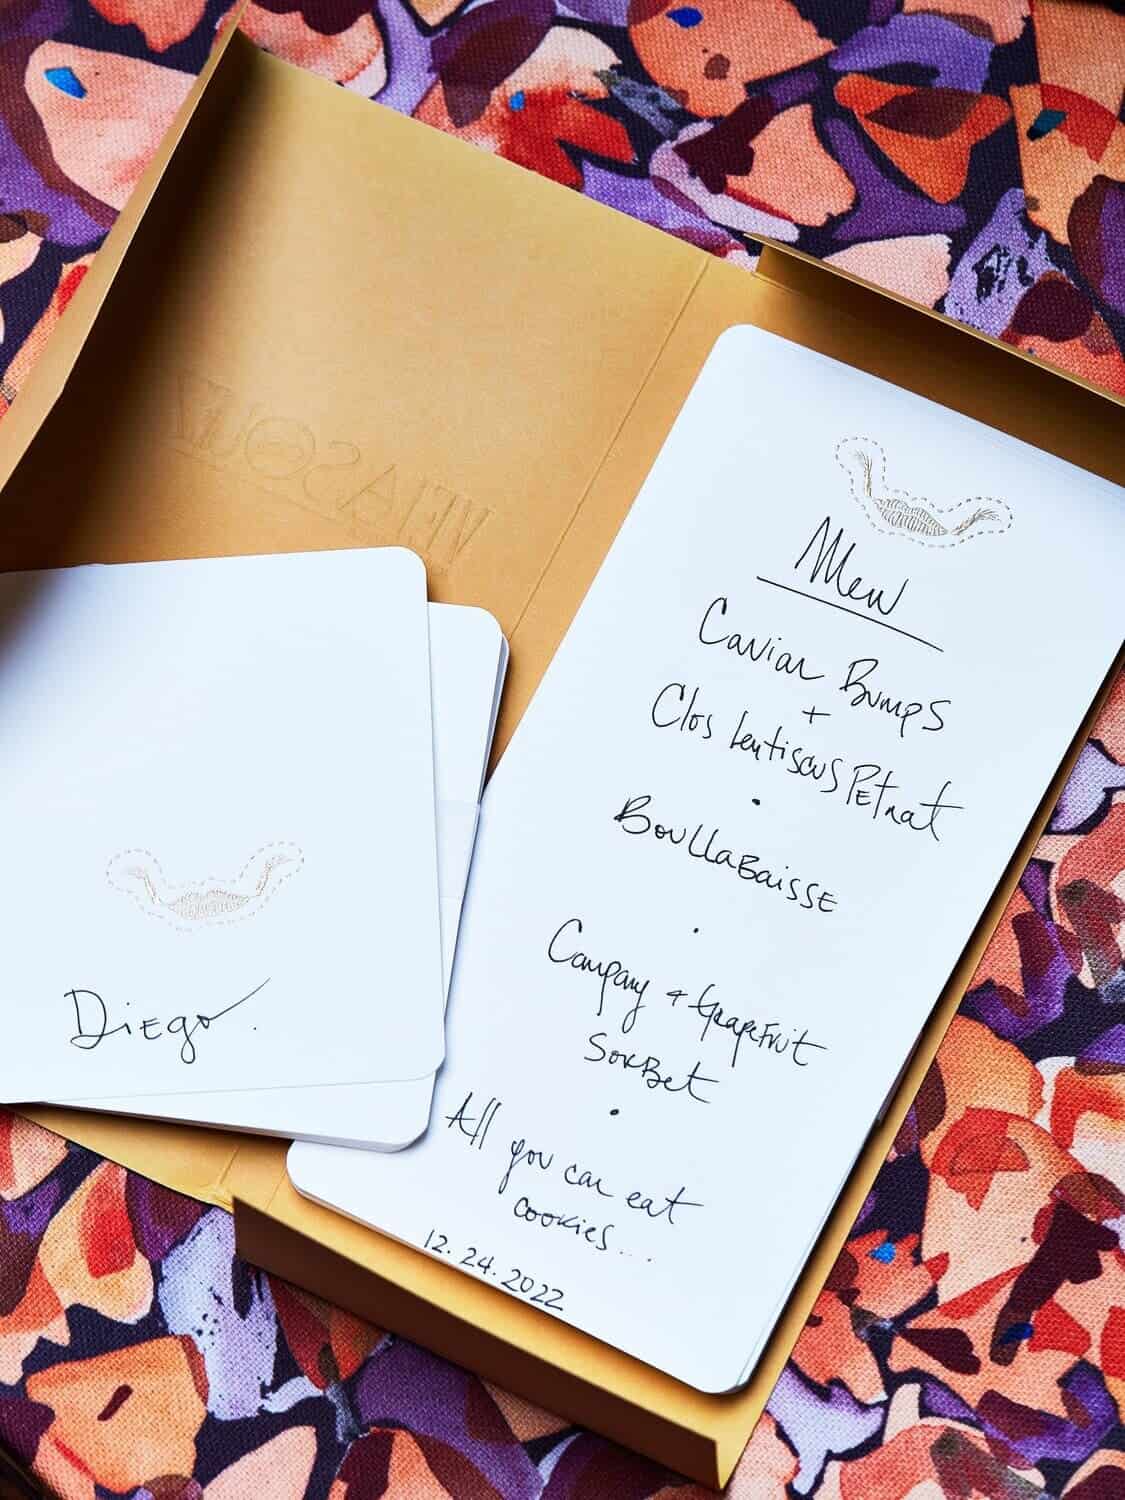 Menu
Caviar Bumps
+
Clos Lentiscus PEtnat
BouLLaBaissE
& GrapeFruit
SorBet
All you can eat
cookies...
12.24.2022
DiEgo.